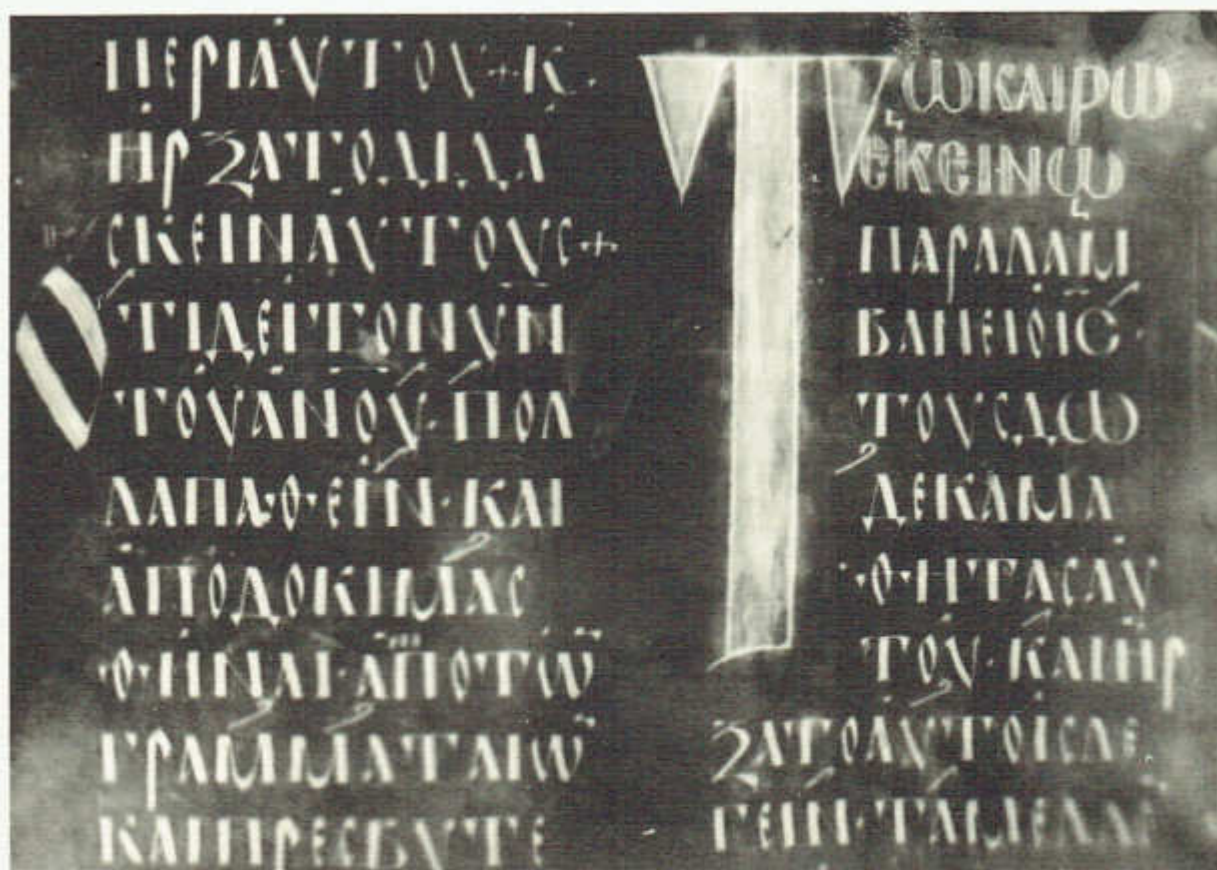 ΠΕΡΙΑΥΤΟΥ+Κ
ΗΡΞΑΤΟΔΙΔΑ
ϹΚΕΙΝΑΥΤΟΥϹ+
ΟΤΙΔΕΙΤΟΝΥΝ
ΤΟΥΑΝΟΥ·ΠΟΛ
ΛΑΠΑΘΕΙΝ·ΚΑΙ
ΑΠΟΔΟΚΙΜΑϹ
ΘΗΝΑΙ·ΑΠΟΤω̅
ΓΡΑΜΜΑΤΑΙω̅
ΚΑΙΠΡΕϹΒΥΤΕ
ΤωΚΑΙΡω
ΕΚΕΙΝω
ΠΑΡΑΛΑΜ
ΒΑΝΕΙΟΙϹ·
ΤΟΥϹΔω
ΔΕΚΑΜΑ
ΘΗΤΑϹΑΥ
ΤΟΥ·ΚΑΙΗΡ
ΞΑΤΟΑΥΤΟΙϹΛΕ
ΓΕΙΝ·ΤΑΜΕΛΛΟ